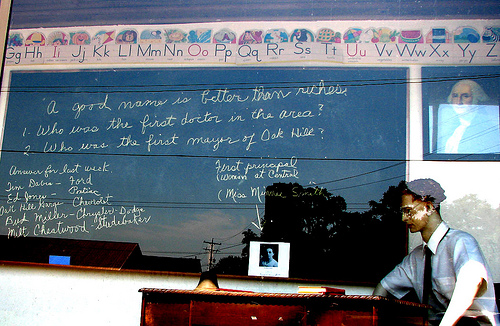 Gg Hh Ii Jj Kk Ll Mm Nn Oo Pp Qq Rr Ss Tt Uu Vv Ww Xx Yy Z
A good name is better than riches.
1. Who was the first doctor in the area?
2. Who was the first mayor of Oak Hill?
Answer for last week
Jim Dabra - Ford
Ed Jones - Pontiac
Oak Hill Garage - Chevrolet
Bud Miller - Chrysler - Dodge
Milt Chestwood - Studebaker
First principal
(Woman at Central
(Miss Minnie Smith